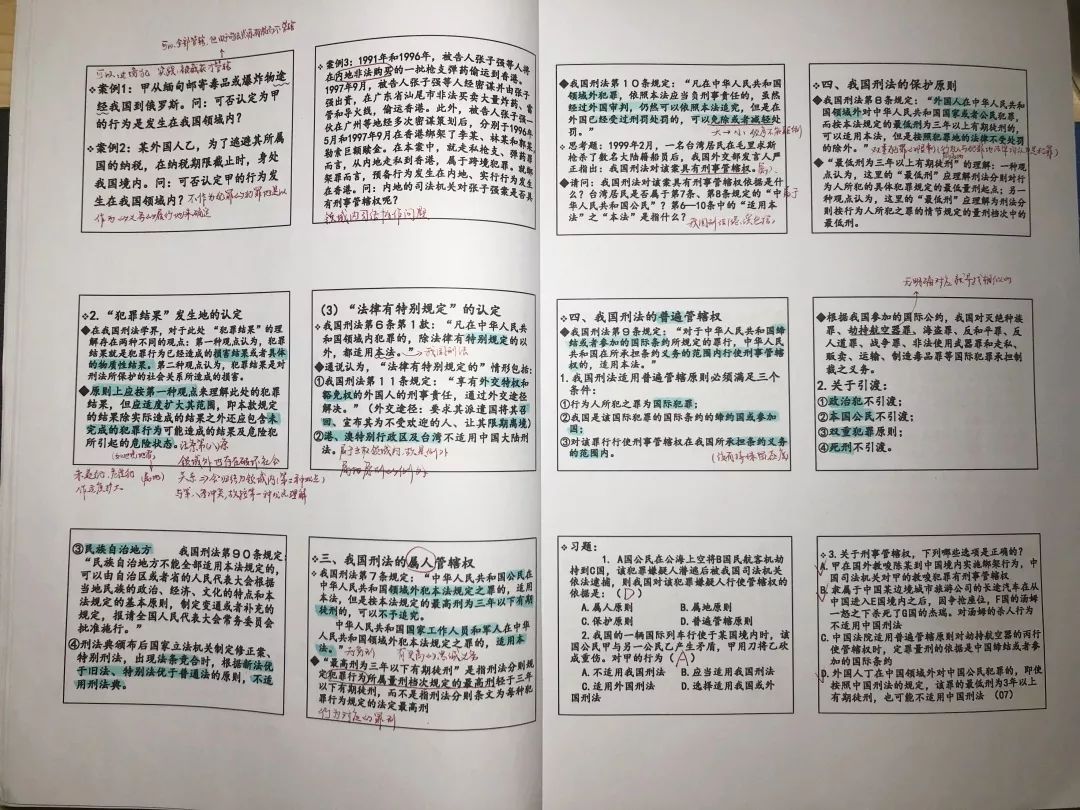 ❖案例1：甲从缅甸邮寄毒品或爆炸物途
经我国到俄罗斯。问：可否认定为甲
的行为是发生在我国领域内？
❖案例2：某外国人乙，为了逃避其所属
国的纳税，在纳税期限截止时，身处
我国境内。问：可否认定甲的行为发
生在我国领域内？
❖案例3：1991年和1996年，被告人张子强等人将
在内地非法购买的一批枪支弹药偷运到香港。
1997年9月，被告人张子强等人经密谋并由张子
强出资，在广东省汕尾市非法买卖大量炸药、雷
管和导火线，偷运香港。此外，被告人张子强一
伙在广州等地经多次密谋策划后，分别于1996年
5月和1997年9月在香港绑架了李某、林某和郭某，
勒索巨额赎金。在本案中，就走私枪支、弹药罪
而言，从内地走私到香港，属于跨境犯罪。就绑
架罪而言，预备行为发生在内地、实行行为发生
在香港。问：内地的司法机关对张子强案是否具
有刑事管辖权呢？
领域内司法协作问题
◆我国刑法第10条规定：“凡在中华人民共和国
领域外犯罪，依照本法应当负刑事责任的，虽然
经过外国审判，仍然可以依照本法追究，但是在
外国已经受过刑罚处罚的，可以免除或者减轻处
罚。”
❖思考题：1999年2月，一名台湾居民在毛里求斯
枪杀了数名大陆籍船员后，我国外交部发言人严
正指出：我国刑法对该案具有刑事管辖权。
◆请问：我国刑法对该案具有刑事管辖权依据是什
么？台湾居民是否属于第7条、第8条规定的“中
华人民共和国公民”？第6—10条中的“适用本
法”之“本法”是指什么？
❖四、我国刑法的保护原则
◆我国刑法第8条规定：“外国人在中华人民共和
国领域外对中华人民共和国国家或者公民犯罪，
而按本法规定的最低刑为三年以上有期徒刑的，
可以适用本法，但是按照犯罪地的法律不受处罚
的除外。”
◆“最低刑为三年以上有期徒刑”的理解：一种观
点认为，这里的“最低刑”应理解刑法分则对行
为人所犯的具体犯罪规定的最低量刑起点；另一
种观点认为，这里的“最低刑”应理解为刑法分
则按行为人所犯之罪的情节规定的量刑档次中的
最低刑。
❖2. “犯罪结果”发生地的认定
◆在我国刑法学界，对于此处“犯罪结果”的理
解存在两种不同的观点：第一种观点认为，犯罪
结果就是犯罪行为已经造成的损害结果或者具体
的物质性结果。第二种观点认为，犯罪结果是对
刑法所保护的社会关系所造成的损害。
◆原则上应按第一种观点来理解此处的犯罪
结果，但应适度扩大其范围，即本款规定
的结果除实际造成的结果之外还应包含未
完成的犯罪行为可能造成的结果及危险犯
所引起的危险状态。
（3）“法律有特别规定”的认定
❖我国刑法第6条第1款：“凡在中华人民共
和国领域内犯罪的，除法律有特别规定的以
外，都适用本法。”→我国刑法
❖通说认为，“法律有特别规定的”情形包括：
①我国刑法第11条规定：“享有外交特权和
豁免权的外国人的刑事责任，通过外交途径
解决。”（外交途径：要求其派遣国将其召
回、宣布其为不受欢迎的人、让其限期离境）
②港、澳特别行政区及台湾不适用中国大陆刑
法。
❖四、我国刑法的普遍管辖权
❖我国刑法第9条规定：“对于中华人民共和国缔
结或者参加的国际条约所规定的罪行，中华人民
共和国在所承担条约义务的范围内行使刑事管辖
权的，适用本法。
1.我国刑法适用普遍管辖原则必须满足三个
条件：
①行为人所犯之罪为国际犯罪；
②我国是该国际犯罪的国际条约的缔约国或参加
国；
③对该罪行行使刑事管辖权在我国所承担条约义务
的范围内。
◆根据我国参加的国际公约，我国对灭绝种族
罪、劫持航空器罪、海盗罪、反和平罪、反人
道罪、战争罪、非法使用武器和走私、
贩卖、运输、制造毒品罪等国际犯罪承担制
裁之义务。
2. 关于引渡：
①政治犯不引渡；
②本国公民不引渡；
③双重犯罪原则；
④死刑不引渡。
③民族自治地方　我国刑法第90条规定：
“民族自治地方不能全部适用本法规定的，
可以由自治区或者省的人民代表大会根据
当地民族的政治、经济、文化的特点和本
法规定的基本原则，制定变通或者补充的
规定，报请全国人民代表大会常务委员会
批准施行。”
④刑法典颁布后国家立法机关制定修正案、
特别刑法，出现法条竞合时，根据新法优
于旧法、特别法优于普通法的原则，不适
用刑法典。
❖三、我国刑法的属人管辖权
❖我国刑法第7条规定：“中华人民共和国公民在
中华人民共和国领域外犯本法规定之罪的，适用
本法，但是按本法规定的最高刑为三年以下有期
徒刑的，可以不予追究。
中华人民共和国国家工作人员和军人在中华
人民共和国领域外犯本法规定之罪的，适用本
法。”
◆“最高刑为三年以下有期徒刑”是指刑法分则规
定犯罪行为所属量刑档次规定的最高刑轻于三年
以下有期徒刑，而不是指刑法分则条文为每种犯
罪行为规定的法定最高刑
❖习题：
1. A国公民在公海上空将B国民航客机劫
持到C国，该犯罪嫌疑人潜逃后被我国司法机关
依法逮捕，则我国对该犯罪嫌疑人行使管辖权的
依据是：（D）
A. 属人原则　B. 属地原则
C. 保护原则　D. 普遍管辖原则
2. 我国的一辆国际列车行使于某国境内时，该
国公民甲与另一公民乙产生矛盾，甲用刀将乙砍
成重伤。对甲的行为（A）
A. 不适用我国刑法　B. 应当适用我国刑法
C. 适用外国刑法　D. 选择适用我国或外
国刑法
❖3. 关于刑事管辖权，下列哪些选项是正确的？
A. 甲在国外教唆陈某到中国境内实施绑架行为，中
国司法机关对甲的教唆犯罪有刑事管辖权
B. 隶属于中国某边境城市旅游公司的长途汽车在从
中国进入E国境内之后，因争抢座位，F国的汤姆
一怒之下杀死了G国的杰瑞。对汤姆的杀人行为
不适用中国刑法
C. 中国法院适用普遍管辖原则对劫持航空器的丙行
使管辖权时，定罪量刑的依据是中国缔结或者参
加的国际条约
D. 外国人丁在中国领域外对中国公民犯罪的，即使
按照中国刑法的规定，该罪的最低刑为3年以上
有期徒刑，也可能不适用中国刑法（07）